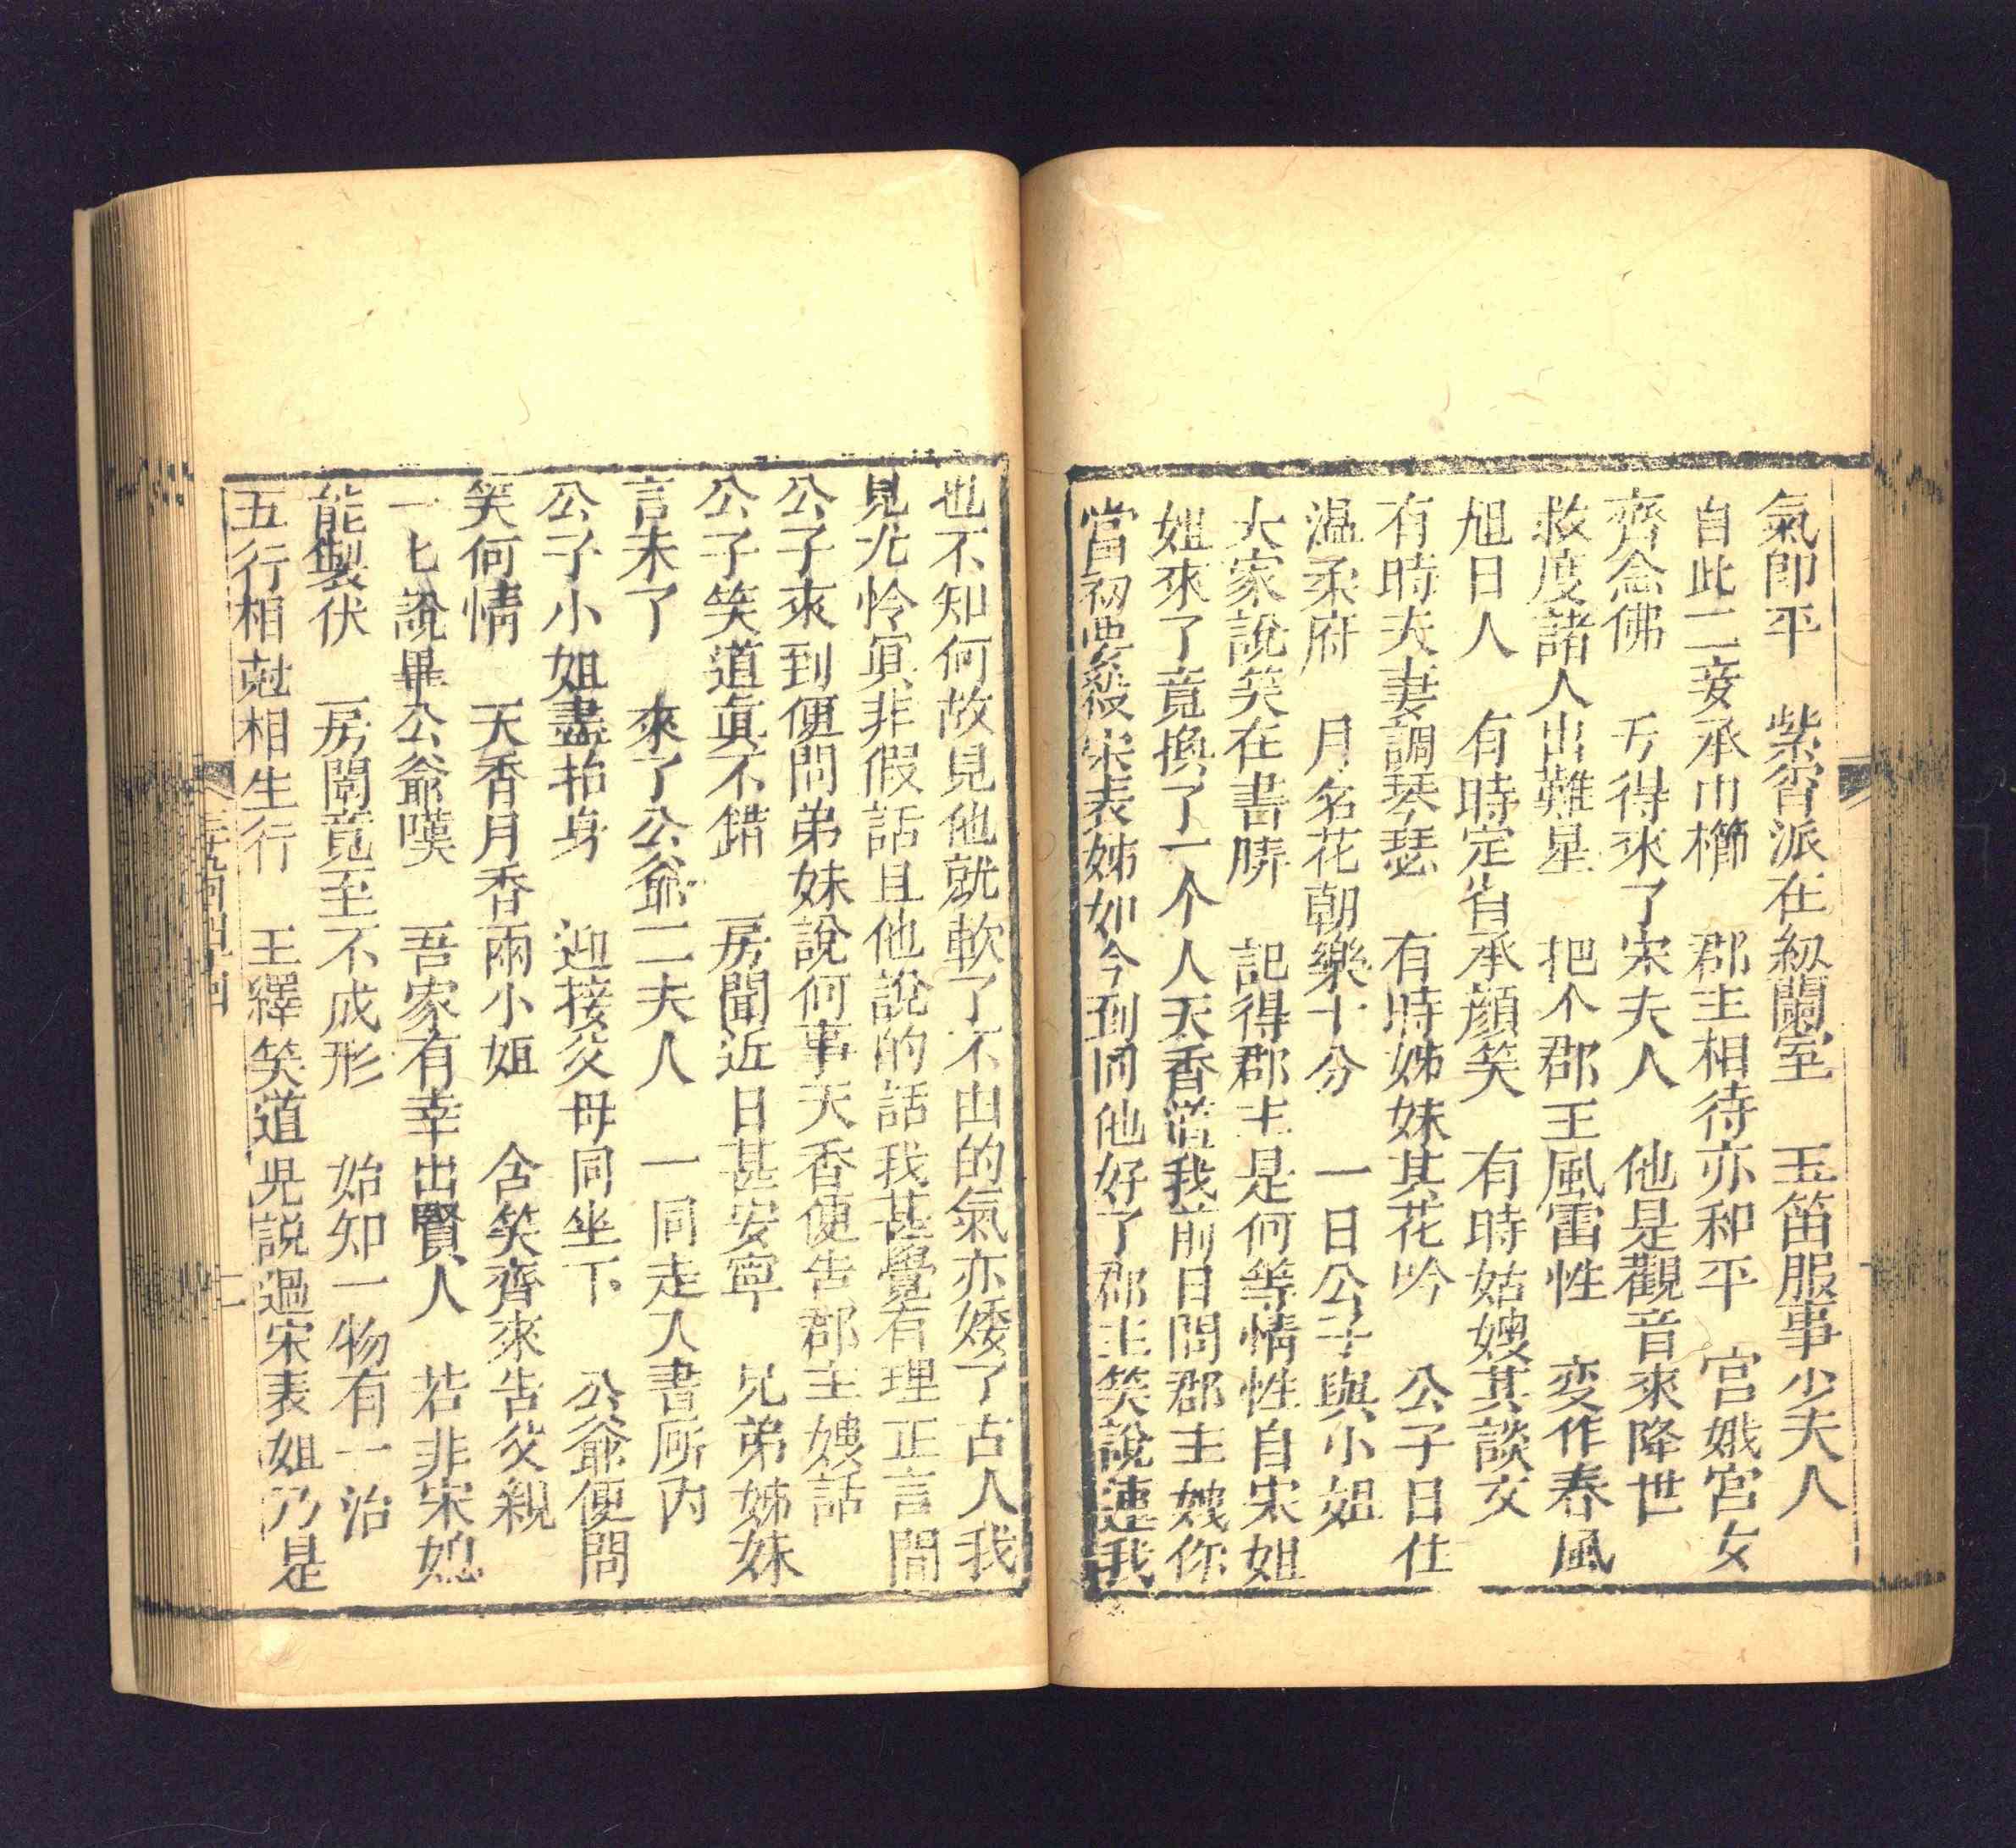 氣即平　紫宵派在紉蘭室　玉笛服事少夫人
自此二妾承巾櫛　郡主相待亦和平　宫娥宫女
齊念佛　亏得來了宋夫人　他是觀音來降世
救度諸人出難星　把个郡王風雷性　变作春風
旭日人　有時定省承顔笑　有時姑嫂其談文
有時夫妻調琴瑟　有時姊妹其花吟　公子日仕
温柔府　月名花朝樂十分　一日公子與小姐
大家說笑在書牎　記得郡主是何等情性自宋姐
姐來了竟換了一个人天香道我前日問郡主嫂你
當初要殺宋表姊如今到同他好了郡主笑說連我
也不知何故見他就軟了不由的氣亦矮了古人我
見尤怜眞非假話且他說的話我甚覺有理正言間
公子來到便問弟妹說何事天香便告郡主嫂話
公子笑道眞不錯　房聞近日甚安寧　兄弟姊妹
言未了　來了公爺二夫人　一同走入書所内
公子小姐盡抬身　迎接父母同坐下　公爺便問
笑何情　天香月香兩小姐　含笑齊來告父親
一匕說畢公爺嘆　吾家有幸出賢人　若非宋媳
能製伏　房闈竟至不成形　始知一物有一治
五行相尅相生行　王繹笑道児説過宋表姐乃是